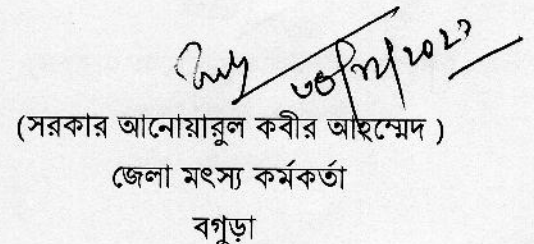 (সরকার আনোয়ারুল কবীর আহম্মেদ )
জেলা মৎস্য কর্মকর্তা
বগুড়া